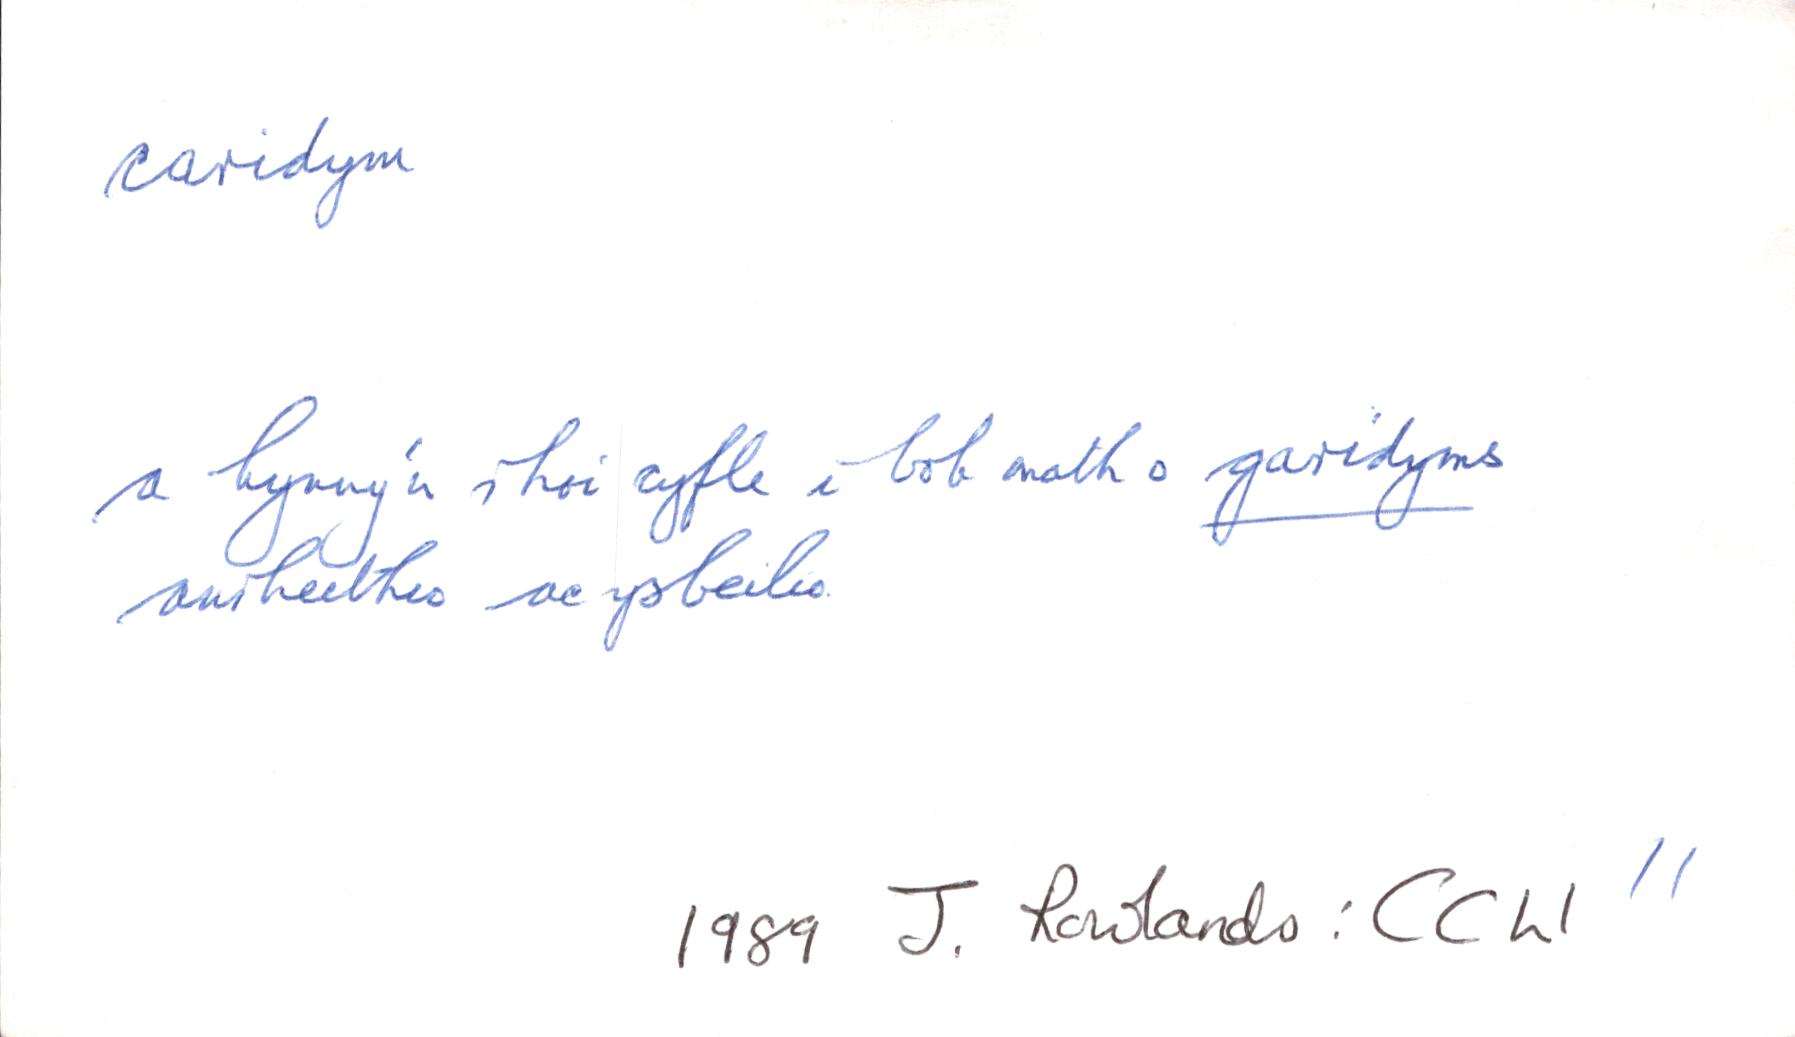 caridym
a hynny'n rhoi cyfle i bob math o garidyms
anrheithio ac ysbeilio.
1989 J. Rowlands: CCLl 11